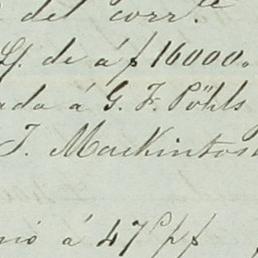 del corr.te
Lf. de á f 16000.
ada á G. F. Pöhls
J. Mackintos
nio á 47 p f